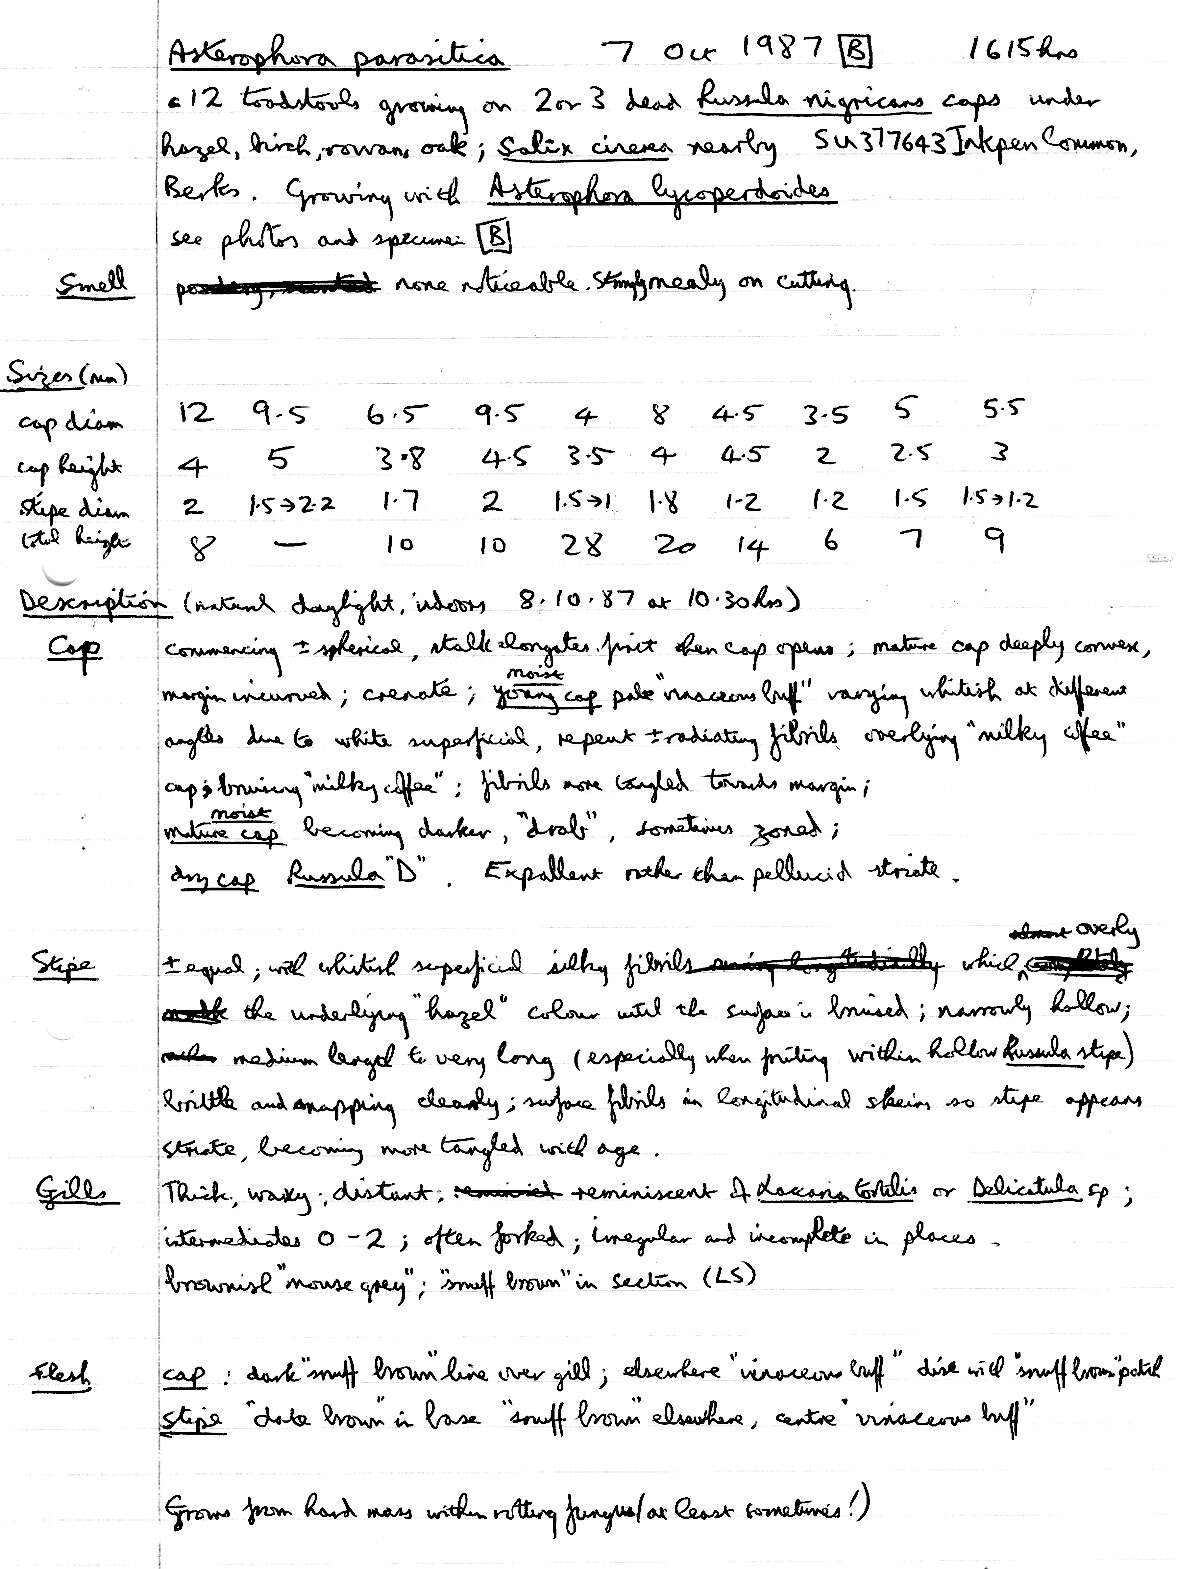 Asterophora parasitica 7 Oct 1987 B 1615hrs
c 12 toadstools growing on 2 or 3 dead Russula nigricans caps under
hazel, birch, rowan, oak; Salix cinerea nearby SU377643 Inkpen Common,
Berks. Growing with Asterophora lycoperdoides
see photos and specimen B
Smell none noticeable. Strongly mealy on cutting.
Sizes (mm)
cap diam 12 9.5 6.5 9.5 4 8 4.5 3.5 5 5.5
cap height 4 5 3.8 4.5 3.5 4 4.5 2 2.5 3
stipe diam 2 1.5→2.2 1.7 2 1.5→1 1.8 1.2 1.2 1.5 1.5→1.2
total height 8 — 10 10 28 20 14 6 7 9
Description (natural daylight, indoors 8.10.87 at 10.30hrs)
Cap commencing ± spherical, stalk elongates first then cap opens; mature cap deeply convex,
moist
margin incurved; crenate; young cap pale "vinaceous buff" varying whitish at different
angles due to white superficial, repent ± radiating fibrils overlying "milky coffee"
cap; bruising "milky coffee"; fibrils more tangled towards margin;
moist
mature cap becoming darker, "drab", sometimes zoned;
dry cap Russula "D". Expallent rather than pellucid striate.
almost overly
Stipe ± equal; with whitish superficial silky fibrils running longitudinally which completely
the underlying "hazel" colour until the surface is bruised; narrowly hollow;
rather medium length to very long (especially when fruiting within hollow Russula stipe)
brittle and snapping cleanly; surface fibrils in longitudinal skeins so stipe appears
striate, becoming more tangled with age.
Gills Thick, waxy; distant; reminiscent of Laccaria tortilis or Delicatula sp;
intermediates 0-2; often forked; irregular and incomplete in places.
brownish "mouse grey"; "snuff brown" in section (LS)
Flesh cap: dark "snuff brown" line over gill; elsewhere "vinaceous buff" disc with "snuff brown" patch
stipe "date brown" in base "snuff brown" elsewhere, centre "vinaceous buff"
Grows from hard mass within rotting fungus (at least sometimes!)